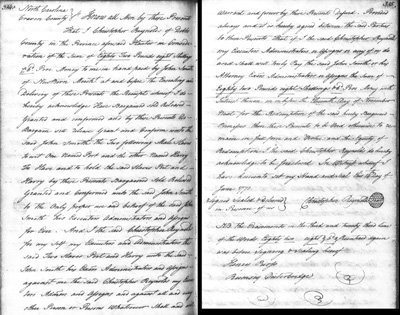 384
North Carolina
Craven County Know all Men by these Presents
That I Christopher Reynolds of Dobbs
County in the Province aforesaid Planter in Consider-
ation of the Sum of Eighty Two Pounds eight Shillings
Money to me in hand Paid by John Smith
of County at and before the Ensealing and
Delivery of these Presents the Receipt whereof I do
hereby acknowledge Have Bargained Sold Released
Granted and confirmed and by these Presents do
Bargain Sell Release Grant and Confirm unto the
said John Smith The Two following Male Slaves
to wit One Named Port and the other Named Harry
To Have and to hold the said Slaves Port and
Harry by these Presents Bargained Sold Released
Granted and Confirmed unto the said John Smith
to the Only Proper use and behoof of the said John
Smith his Executors Administrators and Assigns
for Ever And I the said Christopher Reynolds
for my Self my Executors and Administrators the
said Two Slaves Port and Harry unto the said
John Smith his Heirs Administrators and Assigns
against me the said Christopher Reynolds my Execu-
tors Admors and Assigns and against all and every
other Person or Persons Whatsoever Shall and will
385
Warrant and forever by these Presents Defend Provided
always and it is hereby agreed between the said Parties
to these Presents That if I the said Christopher Reynolds
my Executors Administrators or Assigns or any of us do
and shall well truly Pay the said John Smith or his
Attorney Exors Administrators or Assigns the sum of
Eighty two Pounds eight Shillings Money with
Interest thereon on or before the Day of November
Next for the Redemption of the said hereby Bargained
Premises then these Presents to be Void otherwise to re-
main in full force and Virtue and the Equity of
Redemption I the said Christopher Reynolds do hereby
acknowledge to be foreclosed In Witness whereof I
have hereunto set my Hand and Seal this Day of
June 1771
Signed Sealed & Delivered Christopher Reynolds
in Presence of us
NB The Erasements in the Tenth and Twenty third lines
of the Words Eighty two eight & were
done before Signing & Sealing hereof